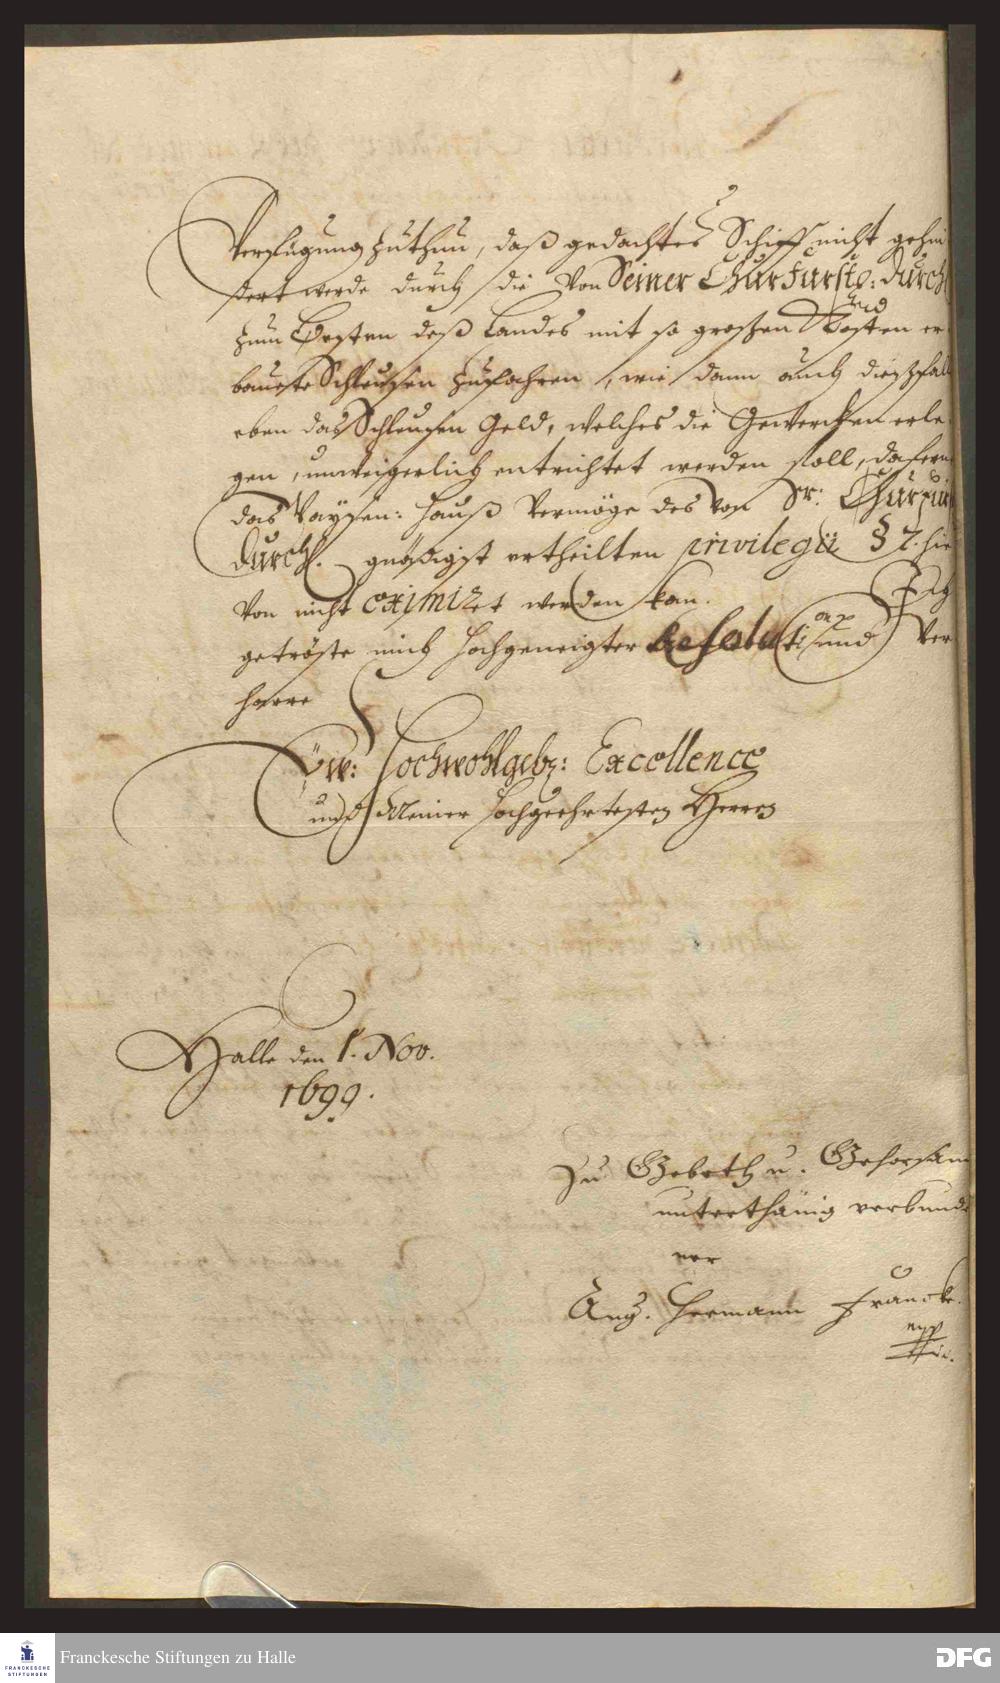 Verfügung zu thun, daß gedachtes Schiff nicht gehin
dert werde durch die von Seiner Churfürstl: Durchl
zum Besten deß Landes mit so großen Kosten er
bauete Schleusen zufahren, wie dann auch
eben das Schleusen Geld, welches die Gewercken erle
gen, unweigerlich entrichtet werden soll, dafern
das Waysen: Hauß vermöge des von Sr: Churfür
Durchl. gnädigst ertheilten privilegii § 7. hie
von nicht eximiret werden kan. Ich
getröste mich hochgeneigter Resolution und ver
harre
Ew: Hochwohlgeb: Excellence
und Meiner Hochgeehrtesten Herren
Halle den 1. Nov.
1699.
Zu Gebeth u. Gehorsam
unterthänig verbunde
ner
Aug. Hermann Francke.
mpp
Franckesche Stiftungen zu Halle
FRANCKESCHE
STIFTUNGEN
DFG